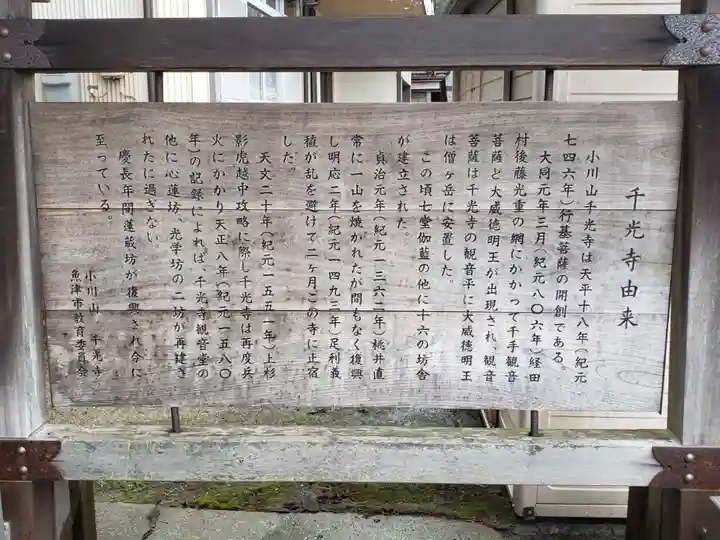 千光寺由来
小川山千光寺は天平十八年(紀元
七四六年)行基菩薩の開創である。
大同元年三月(紀元八〇六年)経田
村後藤光重の網にかかって千手観音
菩薩と大威徳明王が出現され、観音
菩薩は千光寺の観音平に大威徳明王
は僧ヶ岳に安置した。
この頃七堂伽藍の他に十六の坊舎
が建立された。
貞治元年(紀元一三六二年)桃井直
常に一山を焼かれたが間もなく復興
し明応二年(紀元一四九三年)足利義
稙が乱を避けて二ヶ月この寺に止宿
した。
天文二十年(紀元一五五一年)上杉
影虎越中攻略に際し千光寺は再度兵
火にかかり天正八年(紀元一五八〇
年)の記録によれば、千光寺観音堂の
他に心蓮坊、光学坊の二坊が再建さ
れたに過ぎない。
慶長年間蓮蔵坊が復興され今に
至っている。
小川山 千光寺
魚津市教育委員会